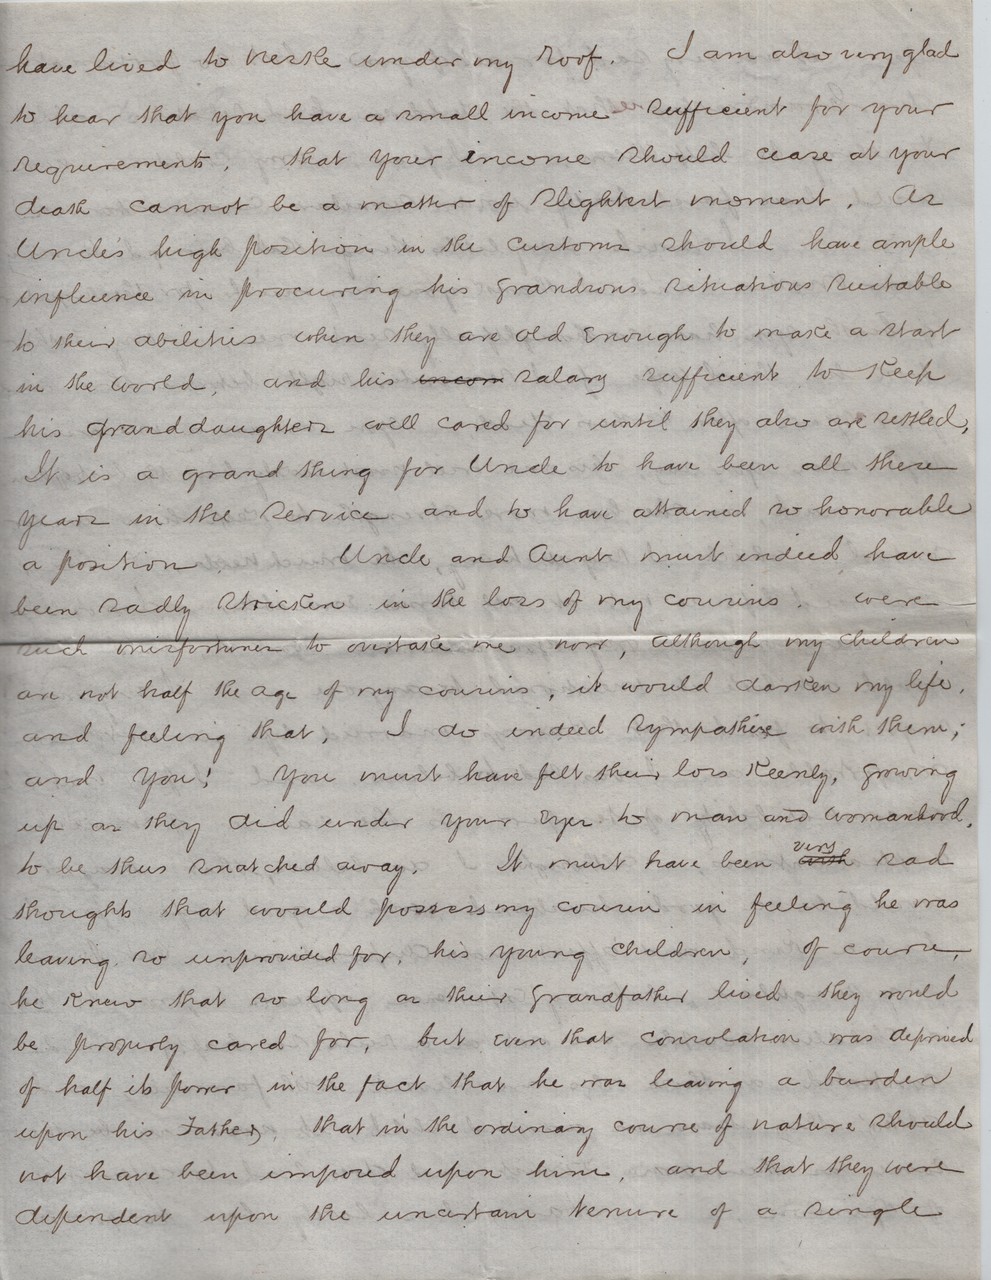 have lived to nestle under my roof. I am also very glad
to hear that you have a small income sufficient for your
requirements. That your income should cease at your
death cannot be a matter of slightest moment. As
Uncle's high position in the customs should have ample
influence in procuring his grandsons situations suitable
to their abilities when they are old enough to make a start
in the world, and his incom salary sufficient to keep
his granddaughters well cared for until they also are settled,
It is a grand thing for Uncle to have been all these
years in the service and to have attained so honorable
a position. Uncle, and Aunt must indeed have
been sadly stricken in the loss of my cousins. were
such misfortunes to overtake me now, although my children
are not half the age of my cousins, it would darken my life.
and feeling that, I do indeed sympathise with them;
and you! You must have felt their loss keenly, growing
up as they did under your eyes to man and womanhood,
to be thus snatched away. It must have been very sad
thoughts that would possess my cousin in feeling he was
leaving so unprovided for, his young children, of course,
he knew that so long as their grandfather lived they would
be properly cared for, but even that consolation was deprived
of half its power in the fact that he was leaving a burden
upon his Father, that in the ordinary course of nature should
not have been imposed upon him, and that they were
dependent upon the uncertain tenure of a single